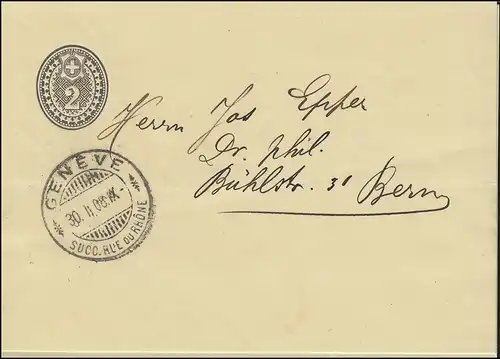 2
Herrn Jos Epper
Dr. phil.
Bühlstr. 31 Bern
GENÈVE
30. II. 08. IX-
SUCC. RUE DU RHÔNE